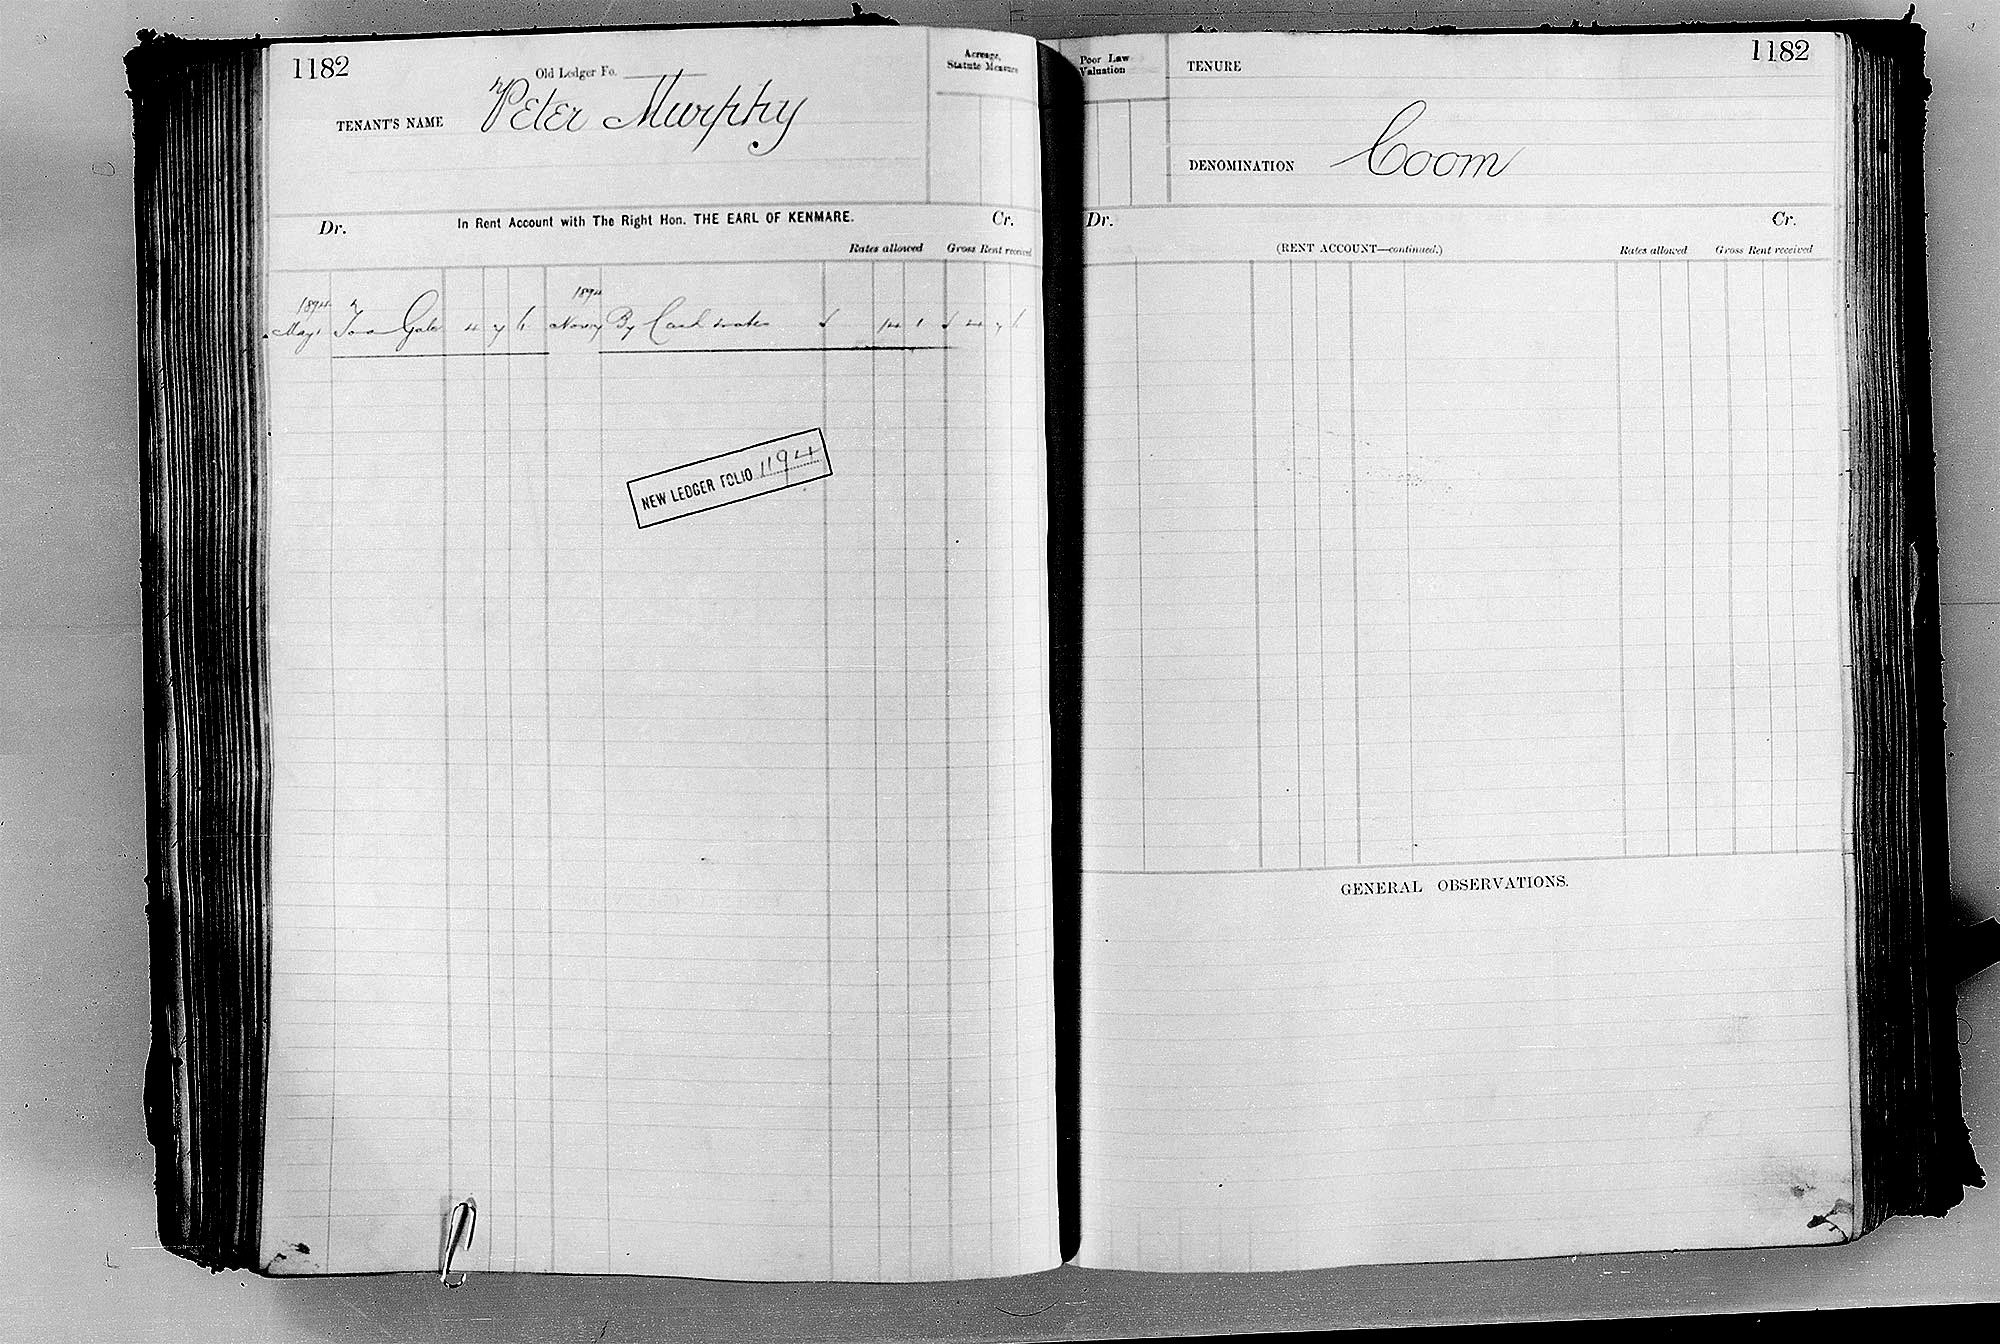 1182
Old Ledger Fo.
TENANT'S NAME Peter Murphy
Acreage,
Statute Measure
Dr. In Rent Account with The Right Hon. THE EARL OF KENMARE. Cr.
Rates allowed Gross Rent received
1894 1894
May 1 To a Gale 4 7 6 Novr 7 By Cash & rates £ 14 1 £ 4 7 6
NEW LEDGER FOLIO 1194
Poor Law
Valuation
TENURE
1182
DENOMINATION Coom
Dr. Cr.
(RENT ACCOUNT—continued.) Rates allowed Gross Rent received
GENERAL OBSERVATIONS.